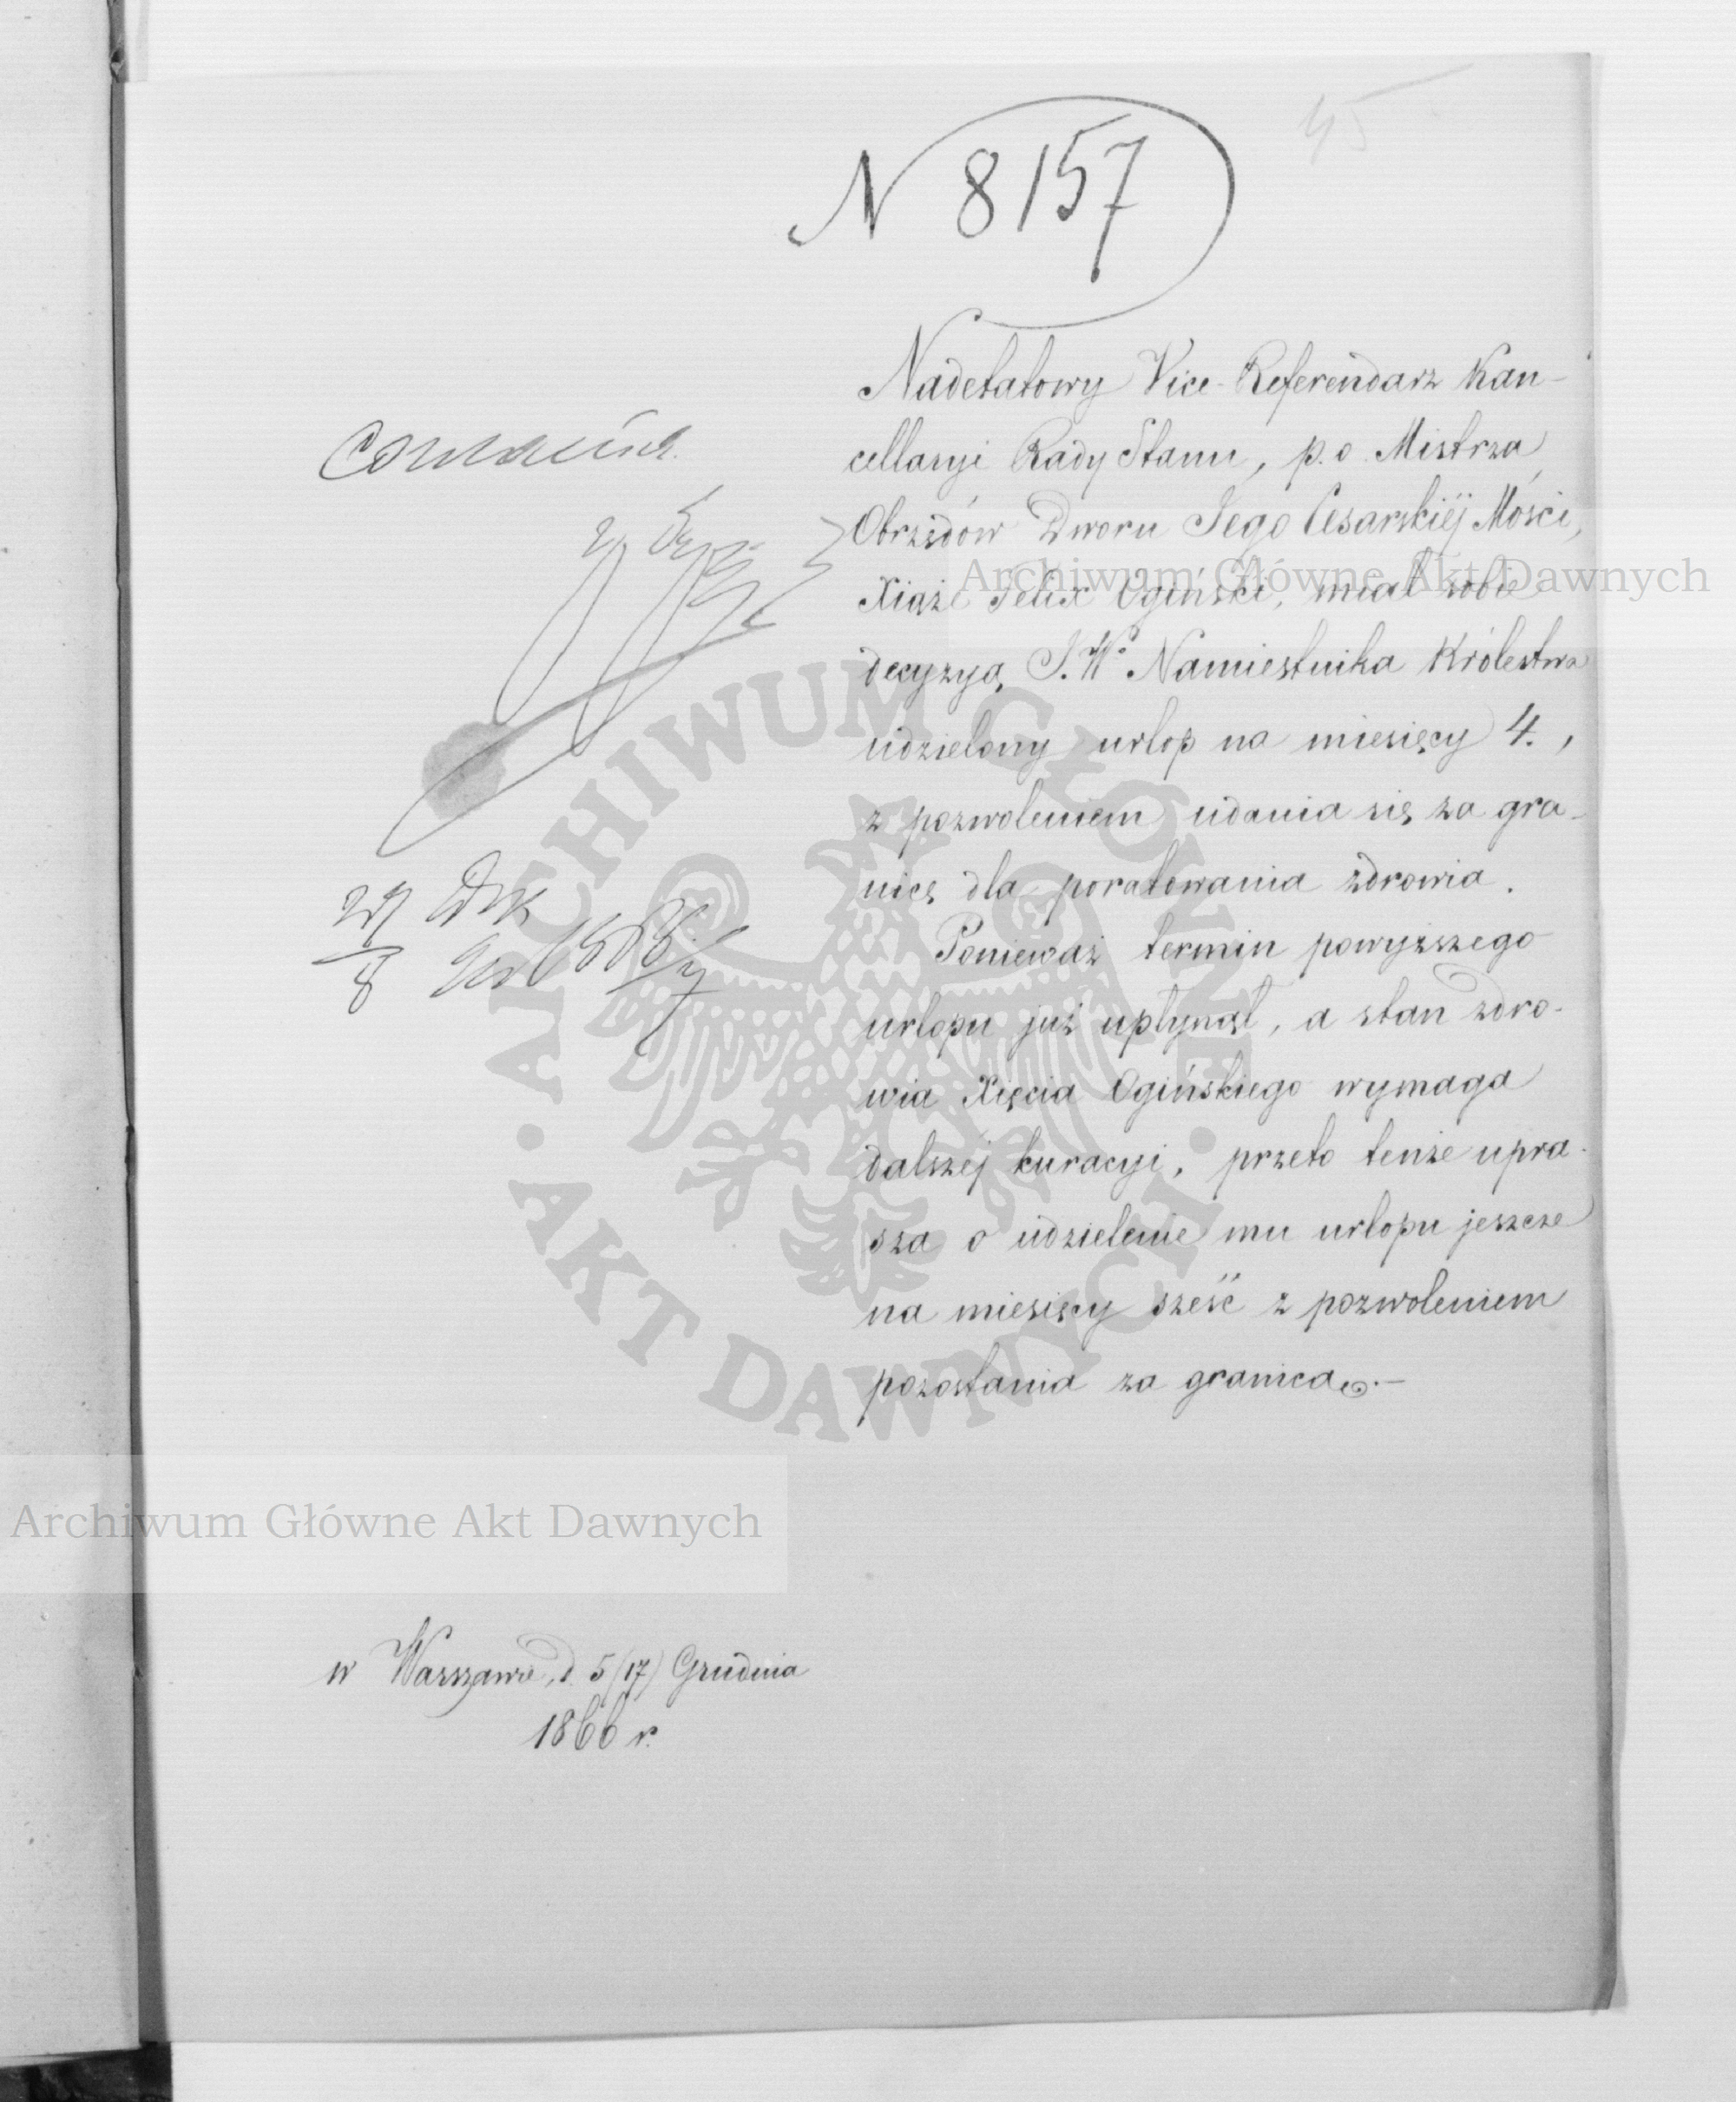 45
N 8157
Nadetatowy Vice-Referendarz Kan-
cellaryi Rady Stanu, p.o. Mistrza
Obrzędów Dworu Jego Cesarskiéj Mości,
Xiąże Felix Ogiński, miał sobie
decyzyą J.W. Namiestnika Królestwa
udzielony urlop na miesięcy 4.,
z pozwoleniem udania się za gra-
nicę dla poratowania zdrowia.
Ponieważ termin powyższego
urlopu już upłynął, a stan zdro-
wia Xięcia Ogińskiego wymaga
dalszej kuracyi, przeto tenże upra-
sza o udzielenie mu urlopu jeszcze
na miesięcy sześć z pozwoleniem
pozostania za granicą.–
w Warszawie, d. 5/17) Grudnia
1866 r.
Archiwum Główne Akt Dawnych
Archiwum Główne Akt Dawnych
ARCHIWUM GŁÓWNE AKT DAWNYCH